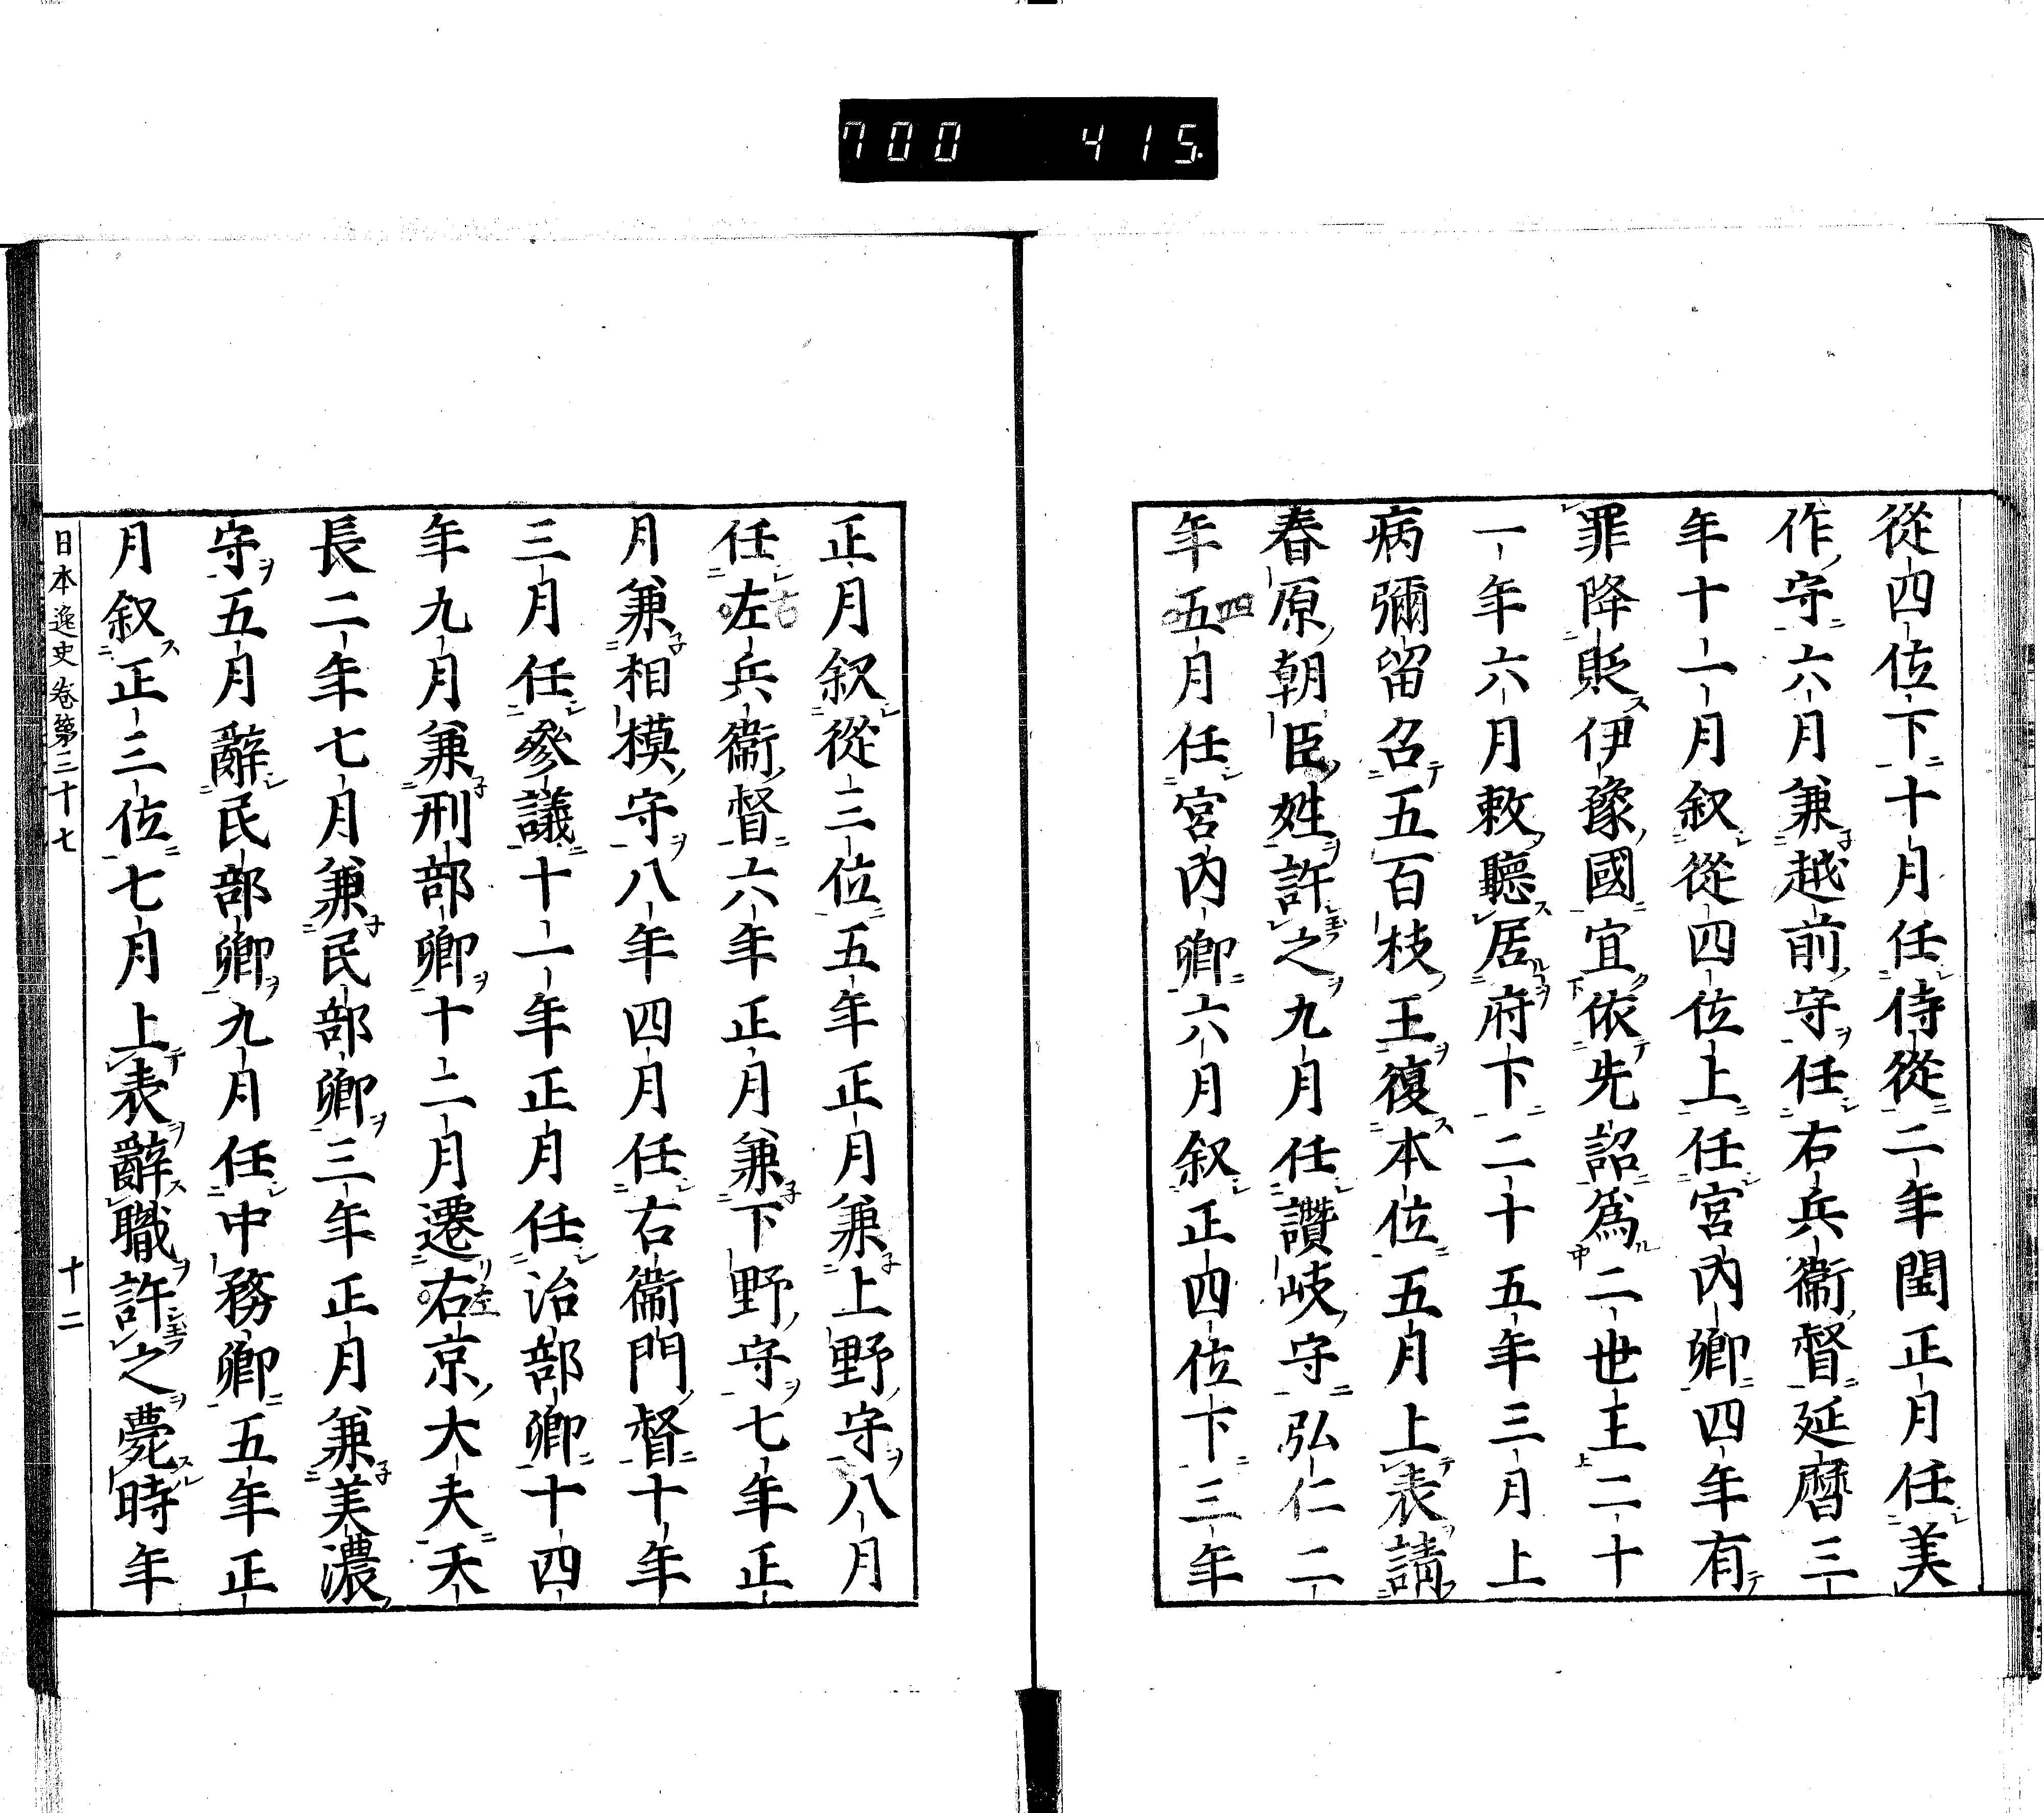 700 415
從四位下十月任侍從二年閏正月任美
作守六月兼越前守任右兵衞督延曆三
年十一月叙從四位上任宮內卿四年有
罪降貶伊豫國宜依先詔爲二世王二十
一年六月敕聽居府下二十五年三月上
病彌留召五百枝王復本位五月上表請
春原朝臣姓許之九月任讚岐守弘仁二
年五月任宮內卿六月叙正四位下三年
正月叙從三位五年正月兼上野守八月
任左兵衞督六年正月兼下野守七年正
月兼相模守八年四月任右衞門督十年
三月任參議十一年正月任治部卿十四
年九月兼刑部卿十二月遷右京大夫天
長二年七月兼民部卿三年正月兼美濃
守五月辭民部卿九月任中務卿五年正
月叙正三位七月上表辭職許之薨時年
日本逸史卷第三十七 十二